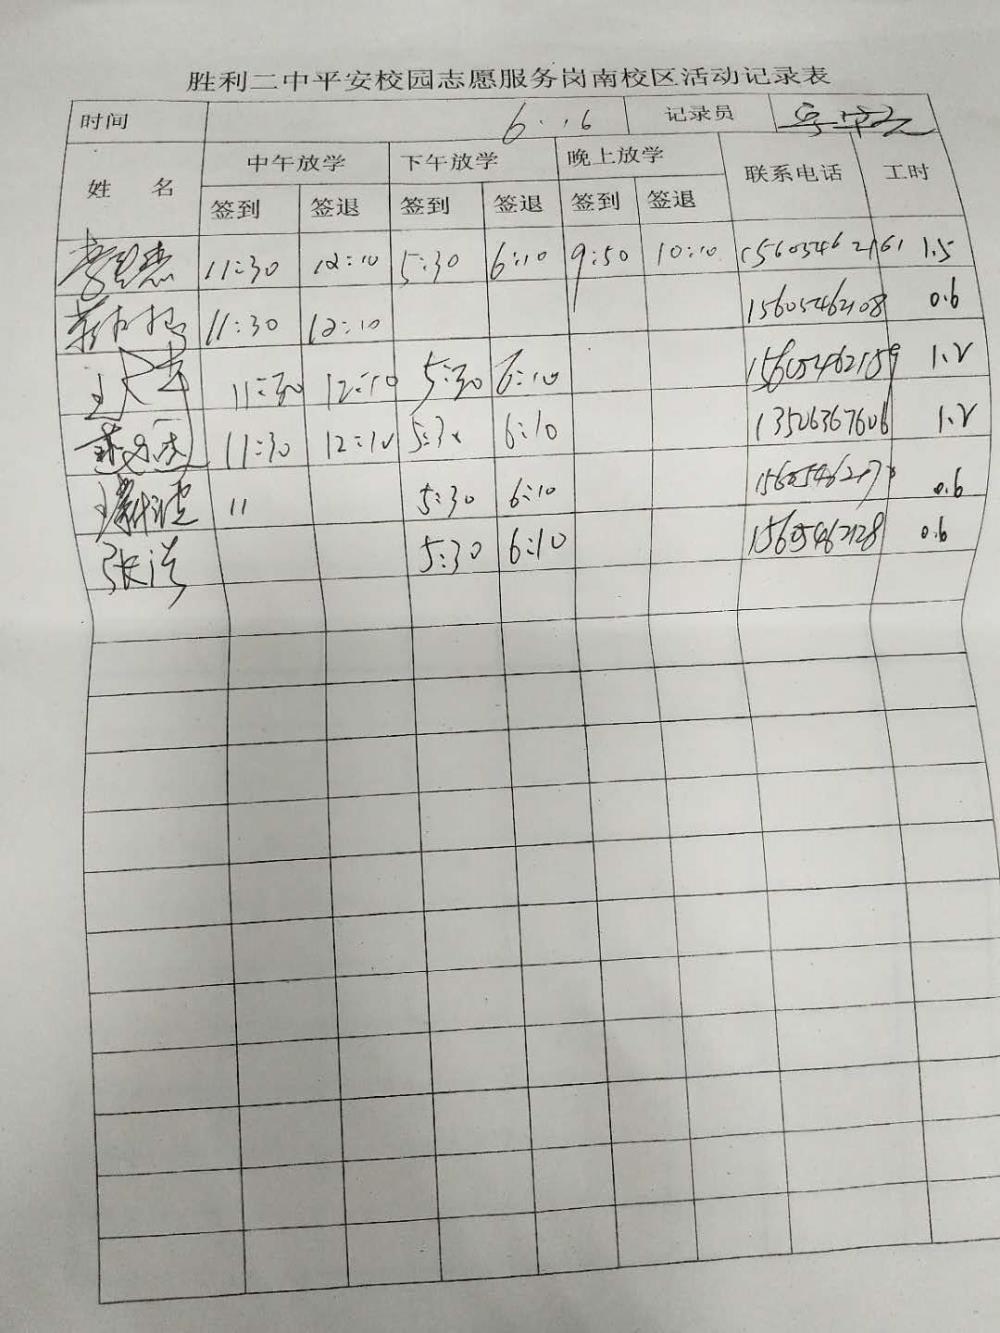 胜利二中平安校园志愿服务岗南校区活动记录表
时间 6.16 记录员
姓 名 中午放学 下午放学 晚上放学 联系电话 工时
签到 签退 签到 签退 签到 签退
11:30 12:10 5:30 6:10 9:50 10:10 15605462161 1.5
11:30 12:10 15605462108 0.6
11:30 12:10 5:30 6:10 15605462159 1.2
11:30 12:10 5:30 6:10 13506367606 1.2
11 5:30 6:10 0.6
张洪 5:30 6:10 15605462128 0.6